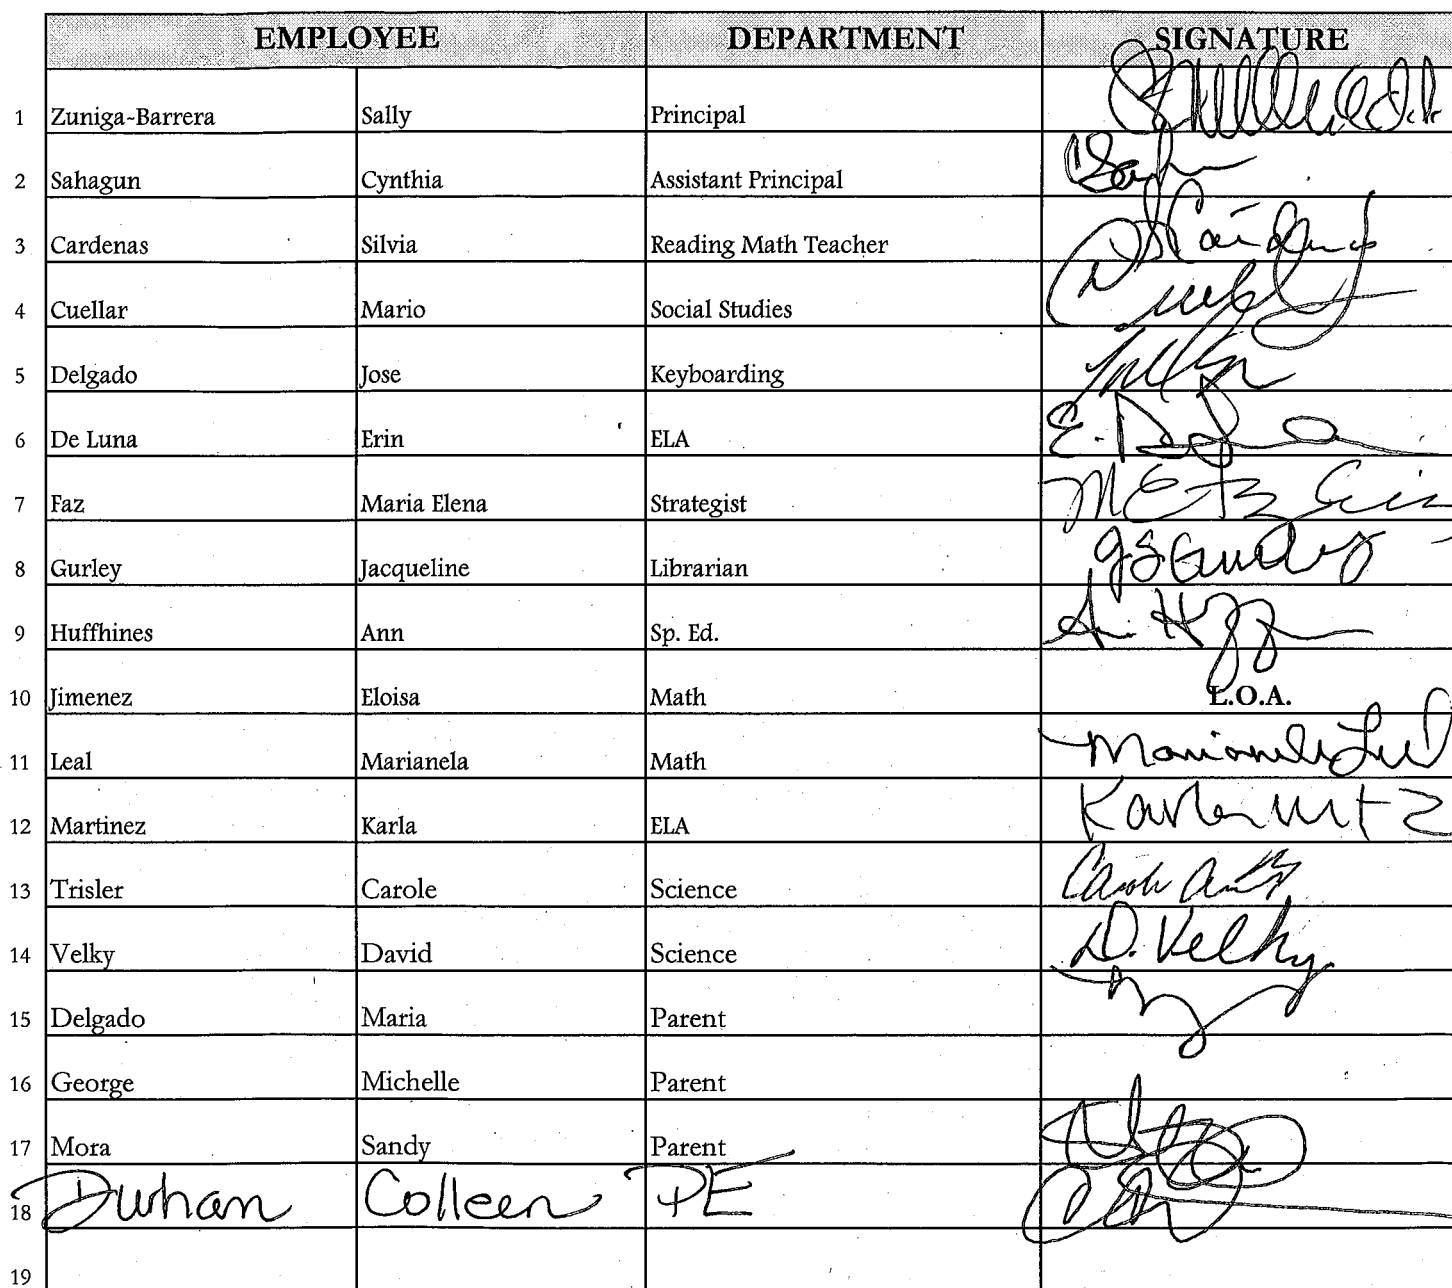 EMPLOYEE DEPARTMENT SIGNATURE
1 Zuniga-Barrera Sally Principal
2 Sahagun Cynthia Assistant Principal
3 Cardenas Silvia Reading Math Teacher S Cardenas
4 Cuellar Mario Social Studies
5 Delgado Jose Keyboarding
6 De Luna Erin ELA
7 Faz Maria Elena Strategist
8 Gurley Jacqueline Librarian
9 Huffhines Ann Sp. Ed.
10 Jimenez Eloisa Math L.O.A.
11 Leal Marianela Math Marianela Leal
12 Martinez Karla ELA Karla Mtz
13 Trisler Carole Science
14 Velky David Science D. Velky
15 Delgado Maria Parent
16 George Michelle Parent
17 Mora Sandy Parent
18 Durhan Colleen PE
19